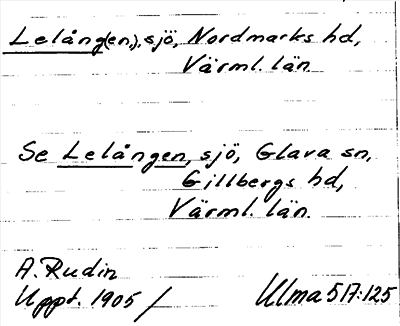 Lelång(en,), sjö, Nordmarks hd,
Värml. län.
Se Lelången, sjö, Glava sn,
Gillbergs hd,
Värml. län.
A. Rudin
Uppt. 1905 / Ulma 517:125